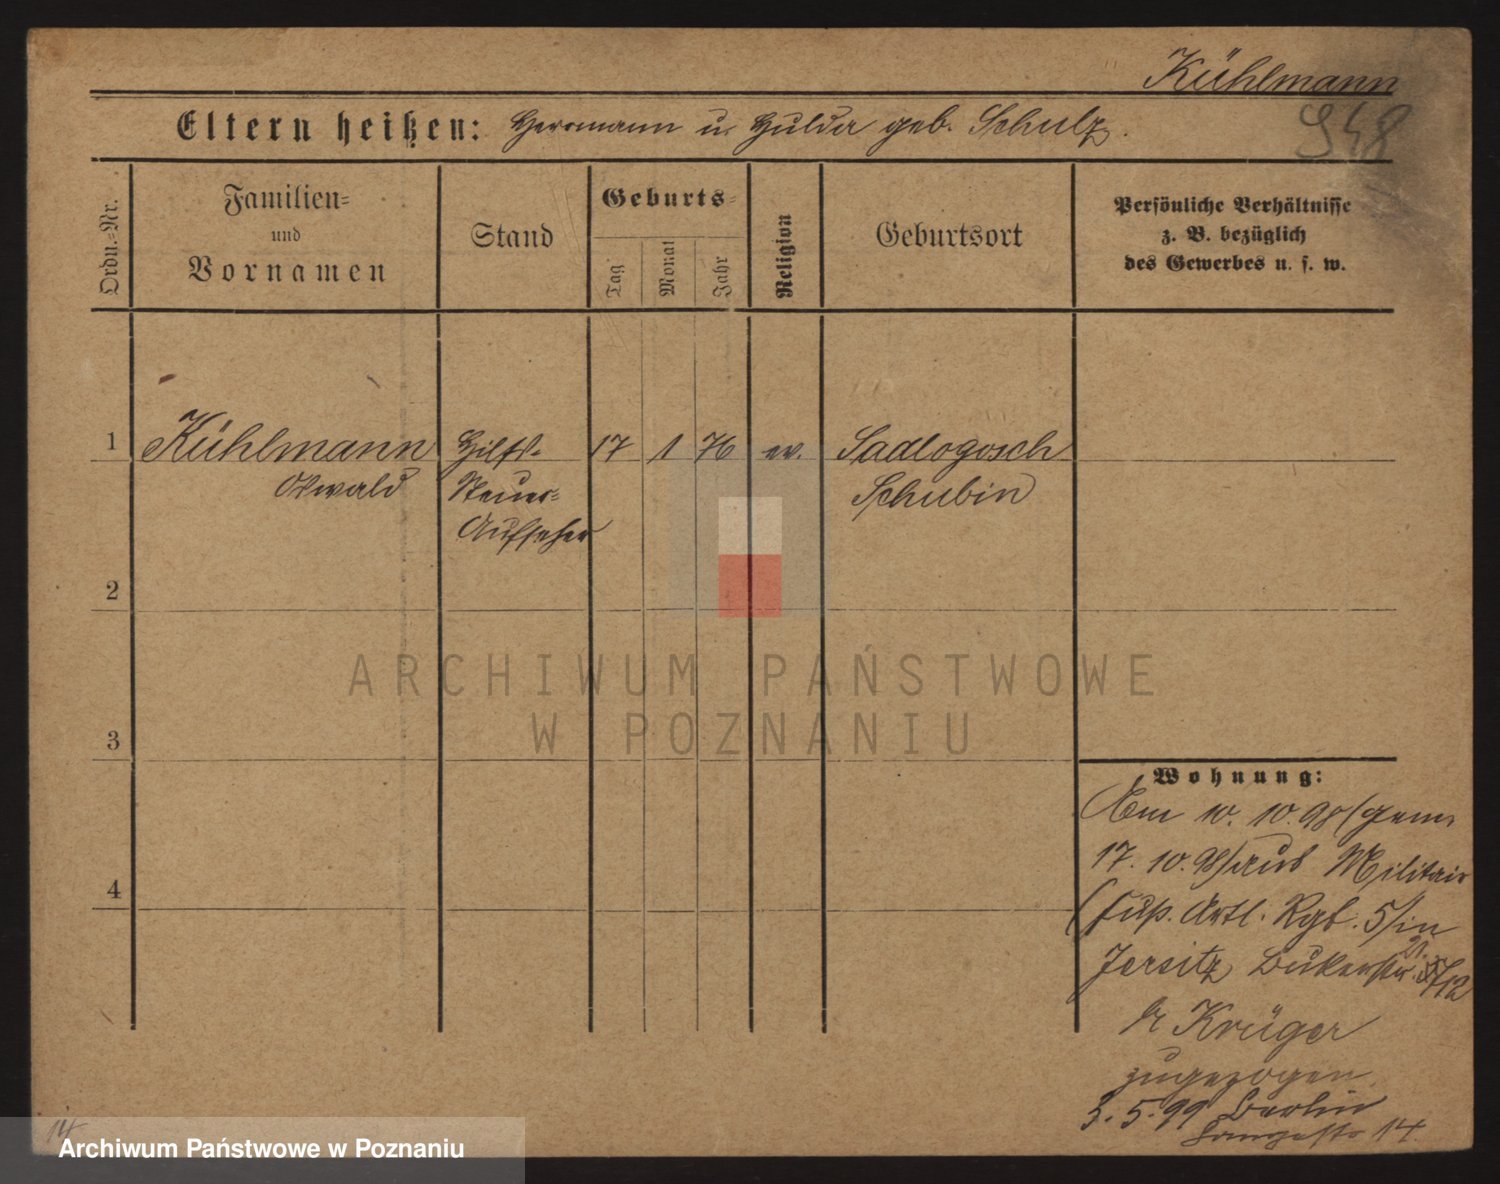 Kühlmann
948
Eltern heißen: Hermann u. Hulda geb. Schulz.
Ordn.-Nr.
Familien-
und
Vornamen
Stand
Geburts-
Tag
Monat
Jahr
Religion
Geburtsort
Persönliche Verhältnisse
z. B. bezüglich
des Gewerbes u. s. w.
1 Kühlmann Hilfs- 17 1 76 ev. Sadlogosch
Oswald Steuer- Schubin
Aufseher
2
ARCHIWUM PAŃSTWOWE
W POZNANIU
3
Wohnung:
Am 10. 10. 98 (gem.
17. 10. 98) aus Militair
4
(Fuß. Artl. Rgt. 5) in
Jersitz Bukerstr.
b/ Krüger
zugezogen
3. 5. 99 Berlin
Langestr 14
14
Archiwum Państwowe w Poznaniu